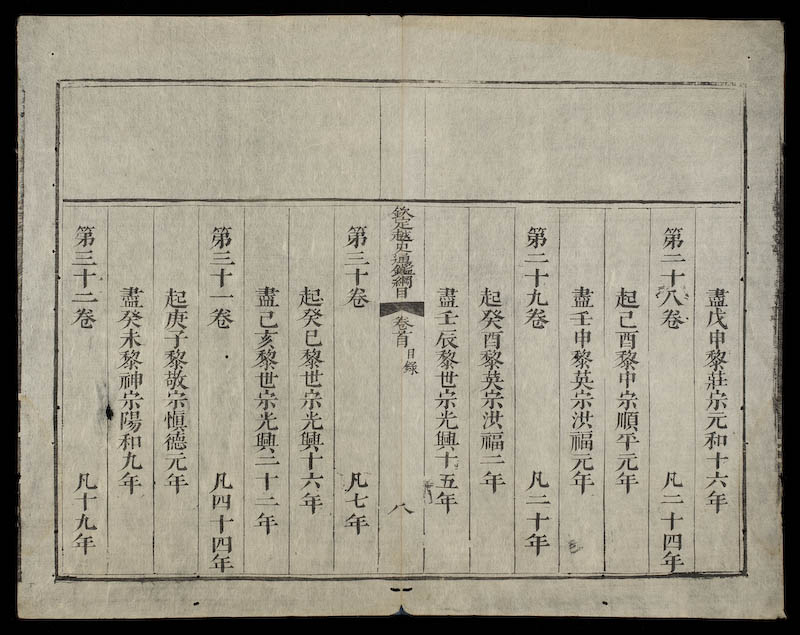 盡戊申黎莊宗元和十六年
第二十八卷 凡二十四年
起己酉黎中宗順平元年
盡壬申黎英宗洪福元年
第二十九卷 凡二十年
起癸酉黎英宗洪福二年
盡壬辰黎世宗光興十五年
欽定越史通鑑綱目 卷首 目錄 八
第三十卷 凡七年
起癸巳黎世宗光興十六年
盡己亥黎世宗光興二十二年
第三十一卷 凡四十四年
起庚子黎敬宗愼德元年
盡癸未黎神宗陽和九年
第三十二卷 凡十九年